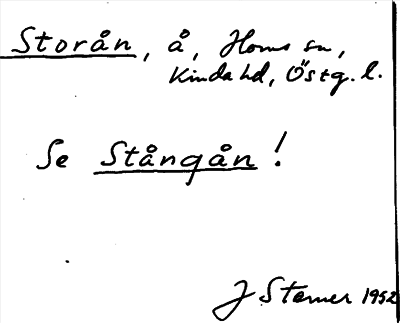 Storån, å, Horns sn,
Kinda hd, Östg. l.
Se Stångån!
J Sterner 1952